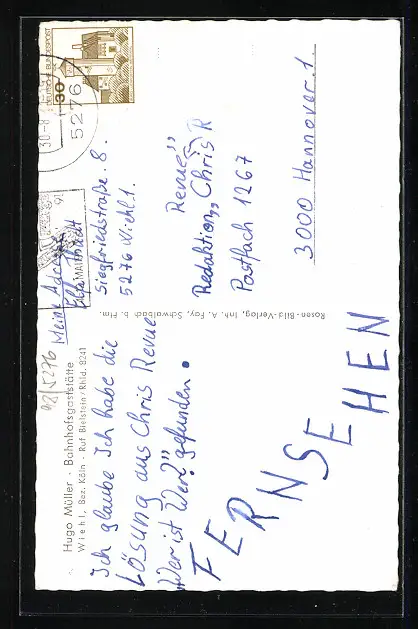 Hugo Müller · Bahnhofsgaststätte
Wiehl, Bez. Köln · Ruf Bielstein/Rhld. 8241
Ich glaube Ich habe die
Lösung aus Chris Revue
„Wer ist Wer?" gefunden.
FERNSEHEN
Rosen-Bild-Verlag, Inh. A. Fay, Schwalbach b. Ffm.
98/5276
Meine Adresse
Siegfriedstraße. 8.
5276 Wiehl. 1.
DEUTSCHE BUNDESPOST
30
5276
Revue"
Redaktion „Chris R
Postfach 1267
3000 Hannover. 1.